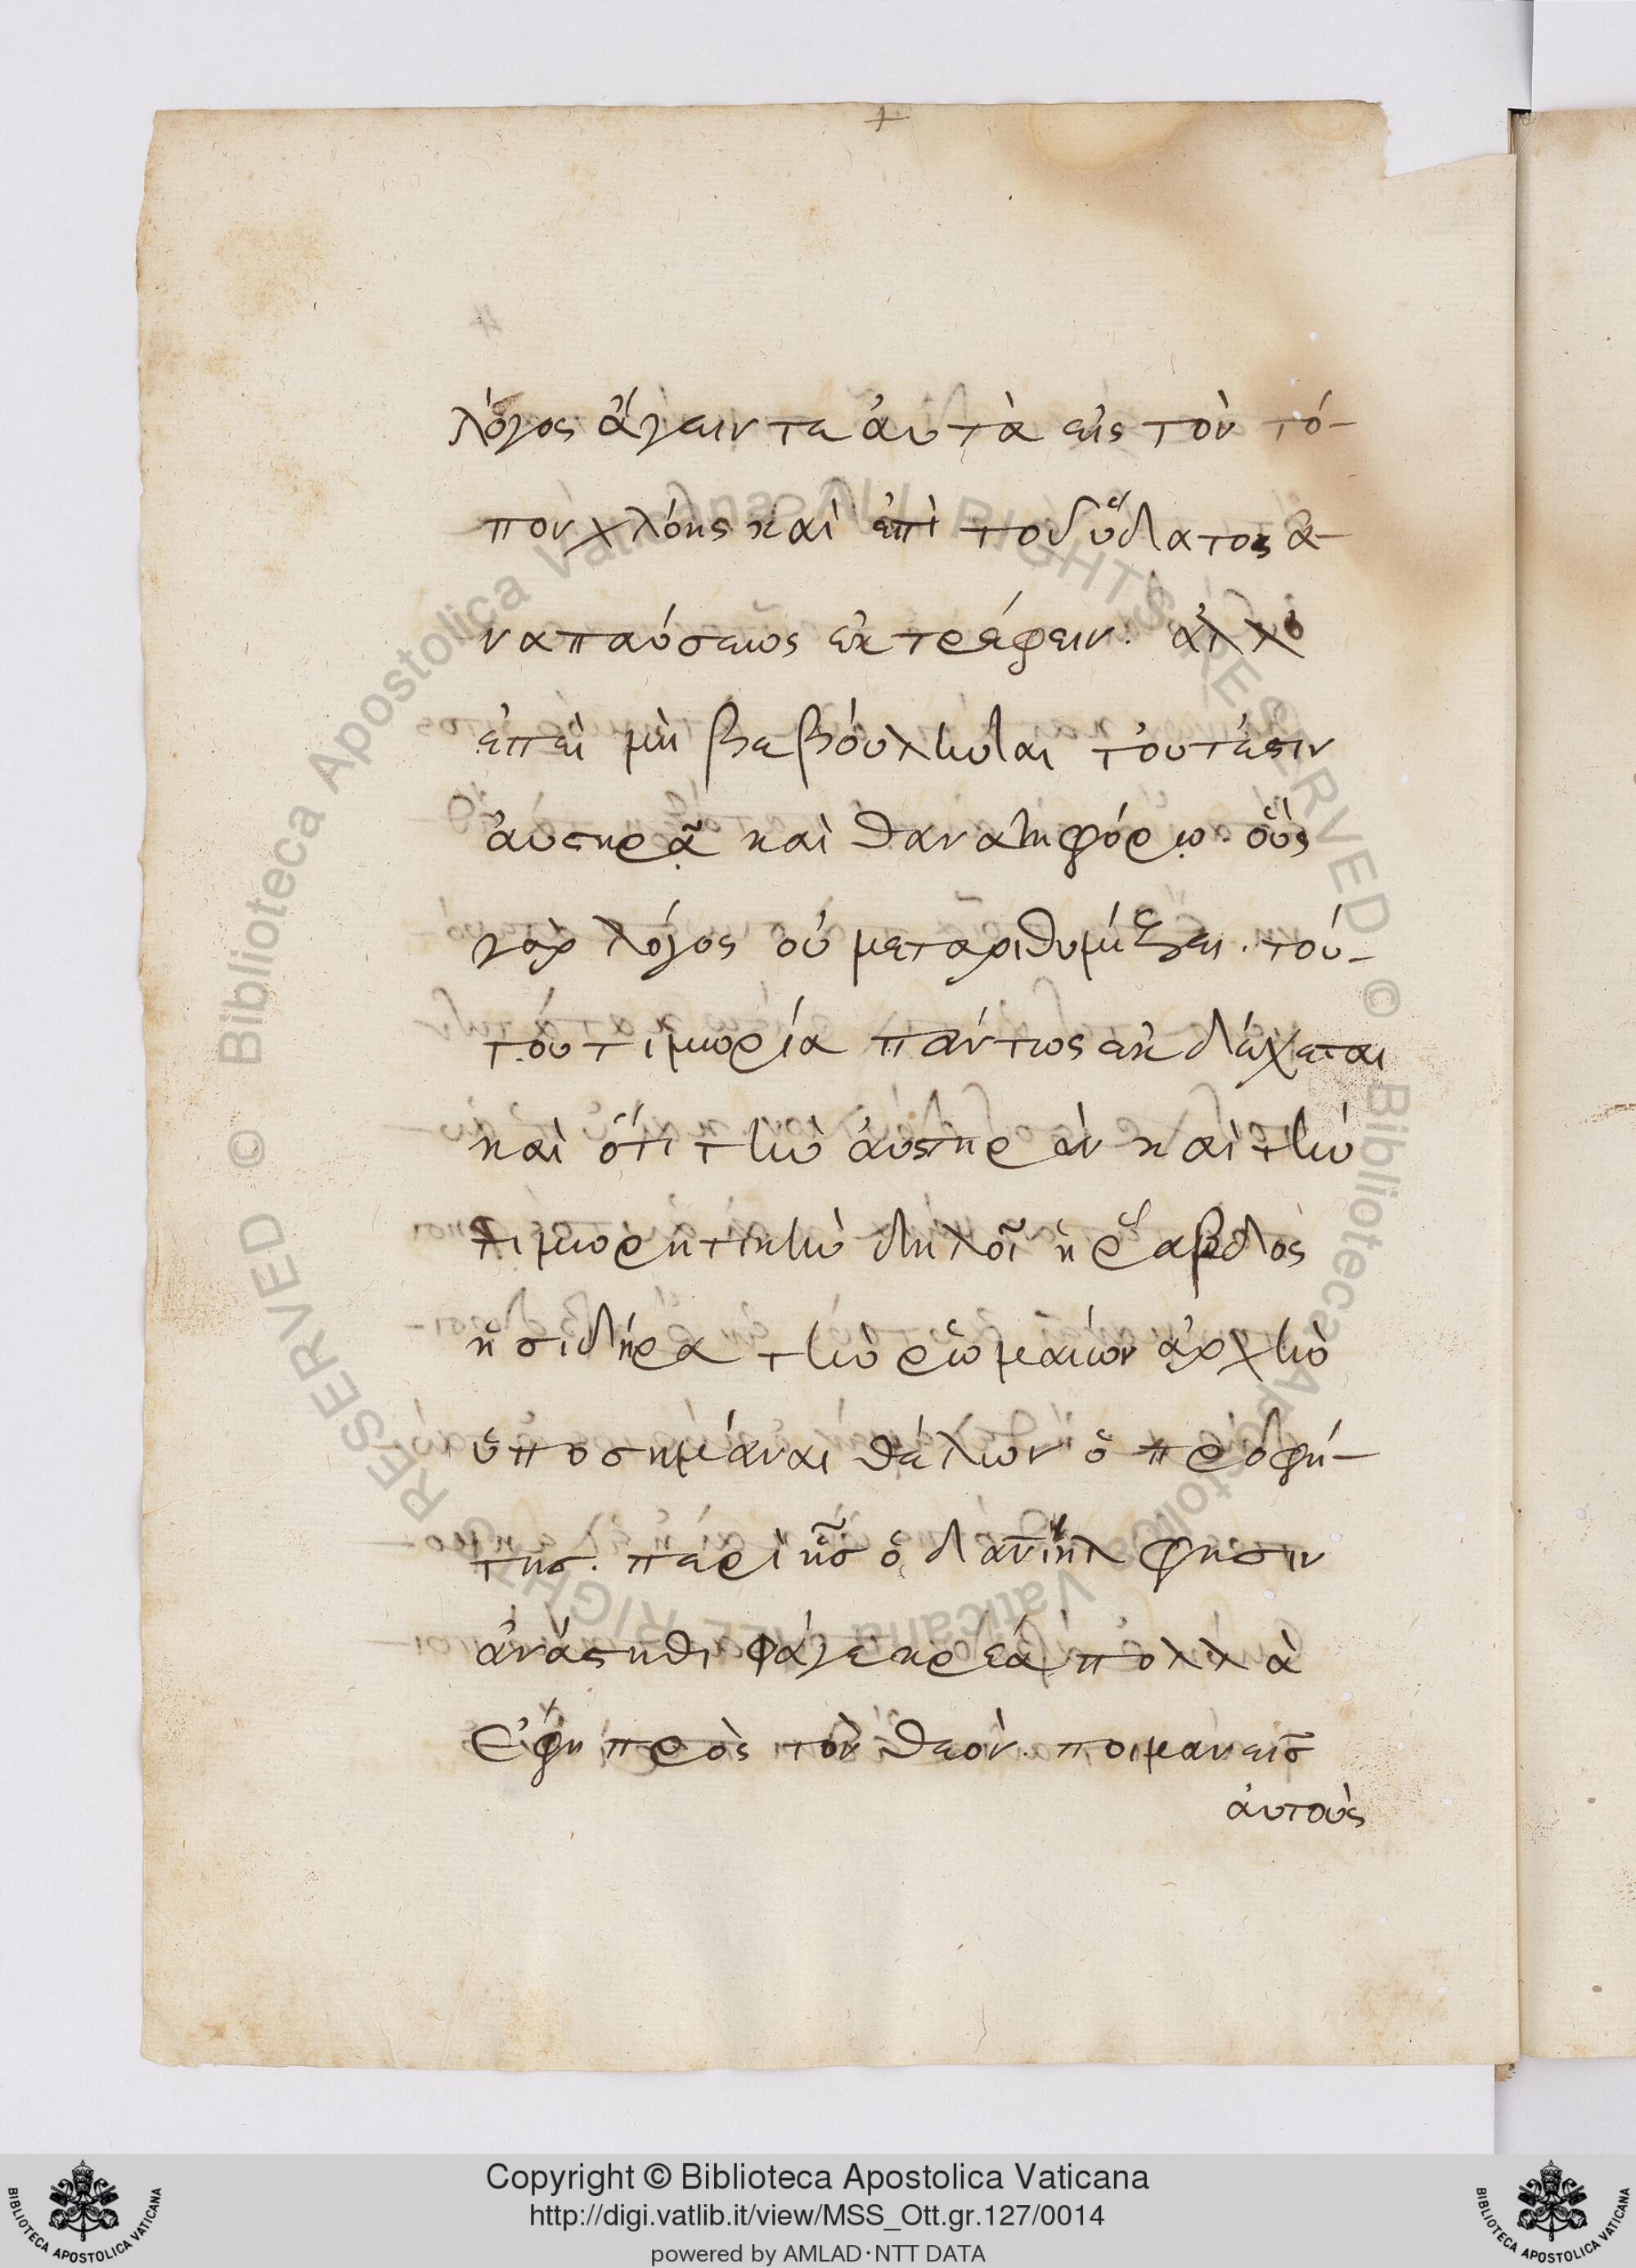 λόγος ἄγειν τε ἀυτὰ εἰς τὸν τό-
πον χλόης καὶ ἐπὶ τοῦ ὕδατος ἀ-
ναπαύσεως ἐκτρέφειν. ἀλλ'
ἐπεὶ μὴ βεβόυληνται τὀυτέστιν
ἀυστηρᾷ καὶ θανατηφόρω. οὓς
γὰρ λόγος οὐ μεταρυθμίζει. τού-
του τιμωρία πάντως ἐκδέχεται
καὶ ὅτι τὴν ἀυστηρὰν καὶ τὴν
τιμωρητικὴν δηλοῖ ἡ ῥάβδος
ἡ σιδήρα τὴν ῥωμαίων ἀρχὴν
ὑποσημᾶναι θέλων ὁ προφή-
της. περὶ ἧς ὁ δανιὴλ φησιν
ἀνάστηθι φάγε κρέα πολλὰ
Ἔφη πρὸς τὸν θεὸν. ποιμανεῖσ
ἀυτοὺς
Copyright © Biblioteca Apostolica Vaticana
http://digi.vatlib.it/view/MSS_Ott.gr.127/0014
powered by AMLAD·NTT DATA
BIBLIOTECA APOSTOLICA VATICANA
BIBLIOTECA APOSTOLICA VATICANA